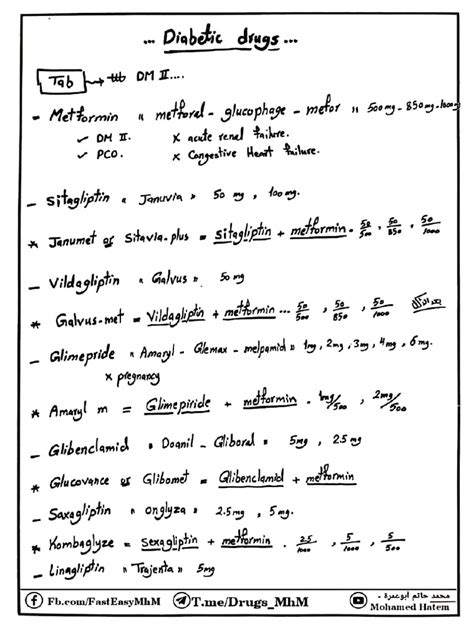 ... Diabetic drugs ...
Tab → ttt DM II....
- Metformin " metforal - glucophage - metfor " 500mg - 850mg - 1000mg
✓ DM II. x acute renal failure.
✓ PCO. x Congestive Heart failure.
- Sitagliptin " Januvia " 50 mg, 100mg.
* Janumet or Sitavia-plus = sitagliptin + metformin - 50/500, 50/850, 50/1000
- Vildagliptin " Galvus " 50 mg
* Galvus-met = Vildagliptin + metformin ... 50/500, 50/850, 50/1000 بعد الأكل
- Glimepride " Amaryl - Glemax - melpamid " 1mg, 2mg, 3mg, 4mg, 6mg.
x pregnancy
* Amaryl m = Glimepiride + metformin . 1mg/500, 2mg/500
- Glibenclamid " Doanil - Gliboral " 5mg, 2.5mg
* Glucovance or Glibomet = Glibenclamid + metformin
- Saxagliptin " onglyza " 2.5mg, 5mg.
* Kombaglyze = sexagliptin + metformin . 2.5/1000, 5/1000, 5/500
- Linagliptin " Trajenta " 5mg
Fb.com/FastEasyMhM T.me/Drugs_MhM محمد حاتم أبوعمرة -
Mohamed Hatem